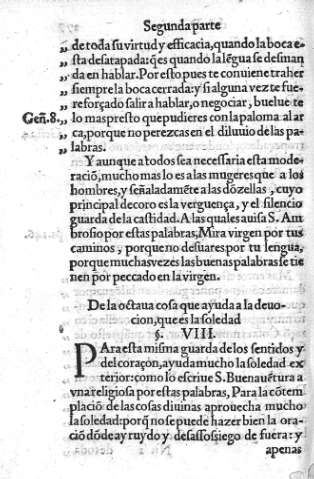 Segunda parte
„ de toda su virtud y efficacia, quando la boca e-
„ sta desatapada: q̃es quando la lẽgua se desman
„ da en hablar. Por esto pues te conuiene traher
„ siempre la boca cerrada: y si alguna vez te fue-
„ re forçado salir a hablar, o negociar, buelue te
Gen̄.8. „ lo mas presto que pudieres con la paloma al ar
„ ca, porque no perezcas en el diluuio de las pa-
„ labras.
Y aunque a todos sea necessaria esta mode-
raciõ, mucho mas lo es a las mugeres que a los
hombres, y señaladamẽte a las dõzellas, cuyo
principal decoro es la verguença, y el silencio
guarda de la castidad. A las quales auisa S. Am
brosio por estas palabras, Mira virgen por tus
caminos, porque no desuares por tu lengua,
porque muchas vezes las buenas palabras se tie
nen por peccado en la virgen.
De la octaua cosa que ayuda a la deuo-
cion, que es la soledad
§. VIII.
PAra esta misma guarda de los sentidos y
del coraçon, ayuda mucho la soledad ex
terior: como lo escriue S. Buenauẽtura a
vna religiosa por estas palabras, Para la cõtem
placiõ de las cosas diuinas aprouecha mucho
la soledad: porq̃ no se puede hazer bien la ora-
ciõ dõde ay ruydo y desassossiego de fuera: y
apenas